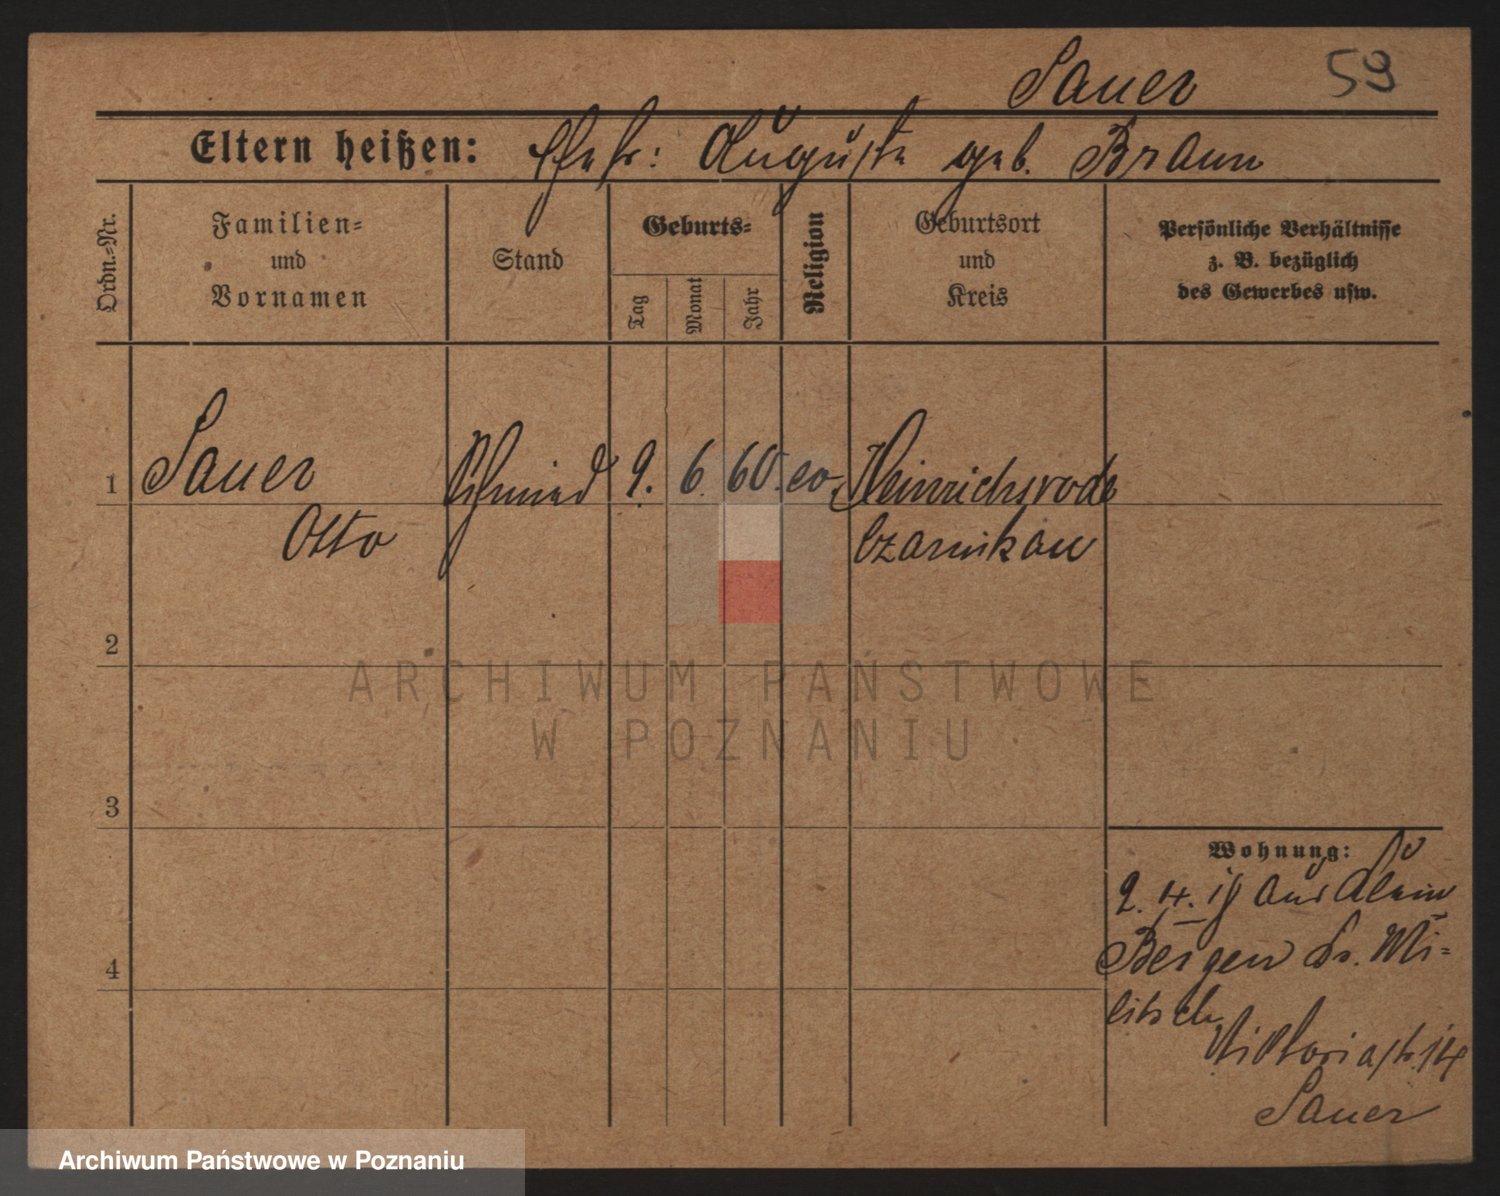 Sauer 59
Eltern heißen: Ehefr: Auguste geb. Braun
Ordn.-Nr.
Familien-
und
Vornamen
Stand
Geburts-
Tag
Monat
Jahr
Religion
Geburtsort
und
Kreis
Persönliche Verhältnisse
z. B. bezüglich
des Gewerbes usw.
1 Sauer Schmied 9. 6. 60. ev. Heinrichsrode
Otto Czarnikau
2
ARCHIWUM PAŃSTWOWE
W POZNANIU
3
Wohnung:
2. 4. aus
Bergen Kr. Mi=
litsch
Viktoriastr. 14
Sauer
4
Archiwum Państwowe w Poznaniu